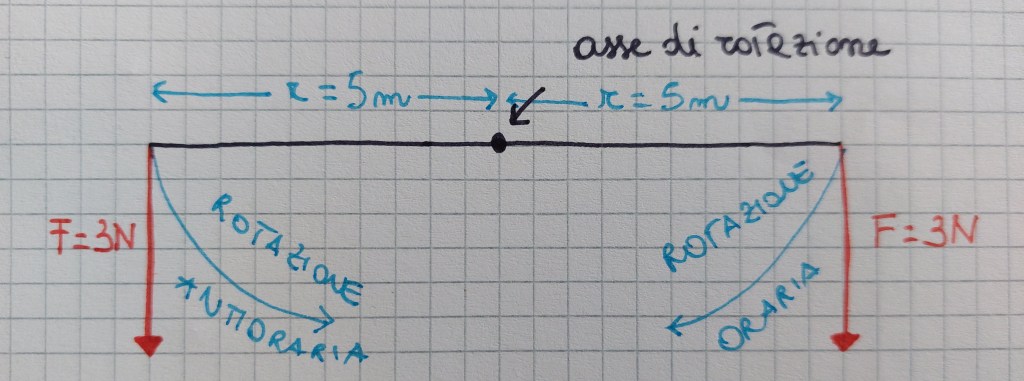 asse di rotazione
r = 5m
r = 5m
F = 3N
ROTAZIONE
ANTIORARIA
ROTAZIONE
ORARIA
F = 3N